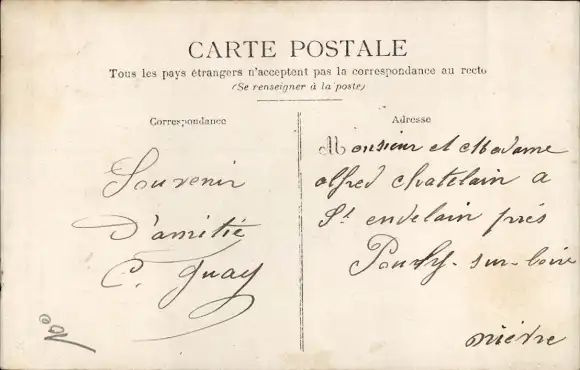 CARTE POSTALE
Tous les pays étrangers n'acceptent pas la correspondance au recto
(Se renseigner à la poste)
Correspondance
Souvenir
D'amitié
C. Guay
Adresse
Monsieur et Madame
alfred chatelain a
St. endelain près
Pouilly-sur-loire
nièvre